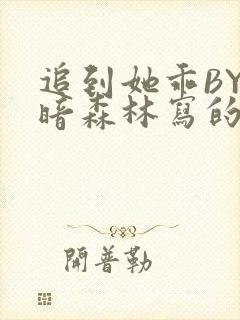 追到她乖BY
暗森林寫的
開普勒